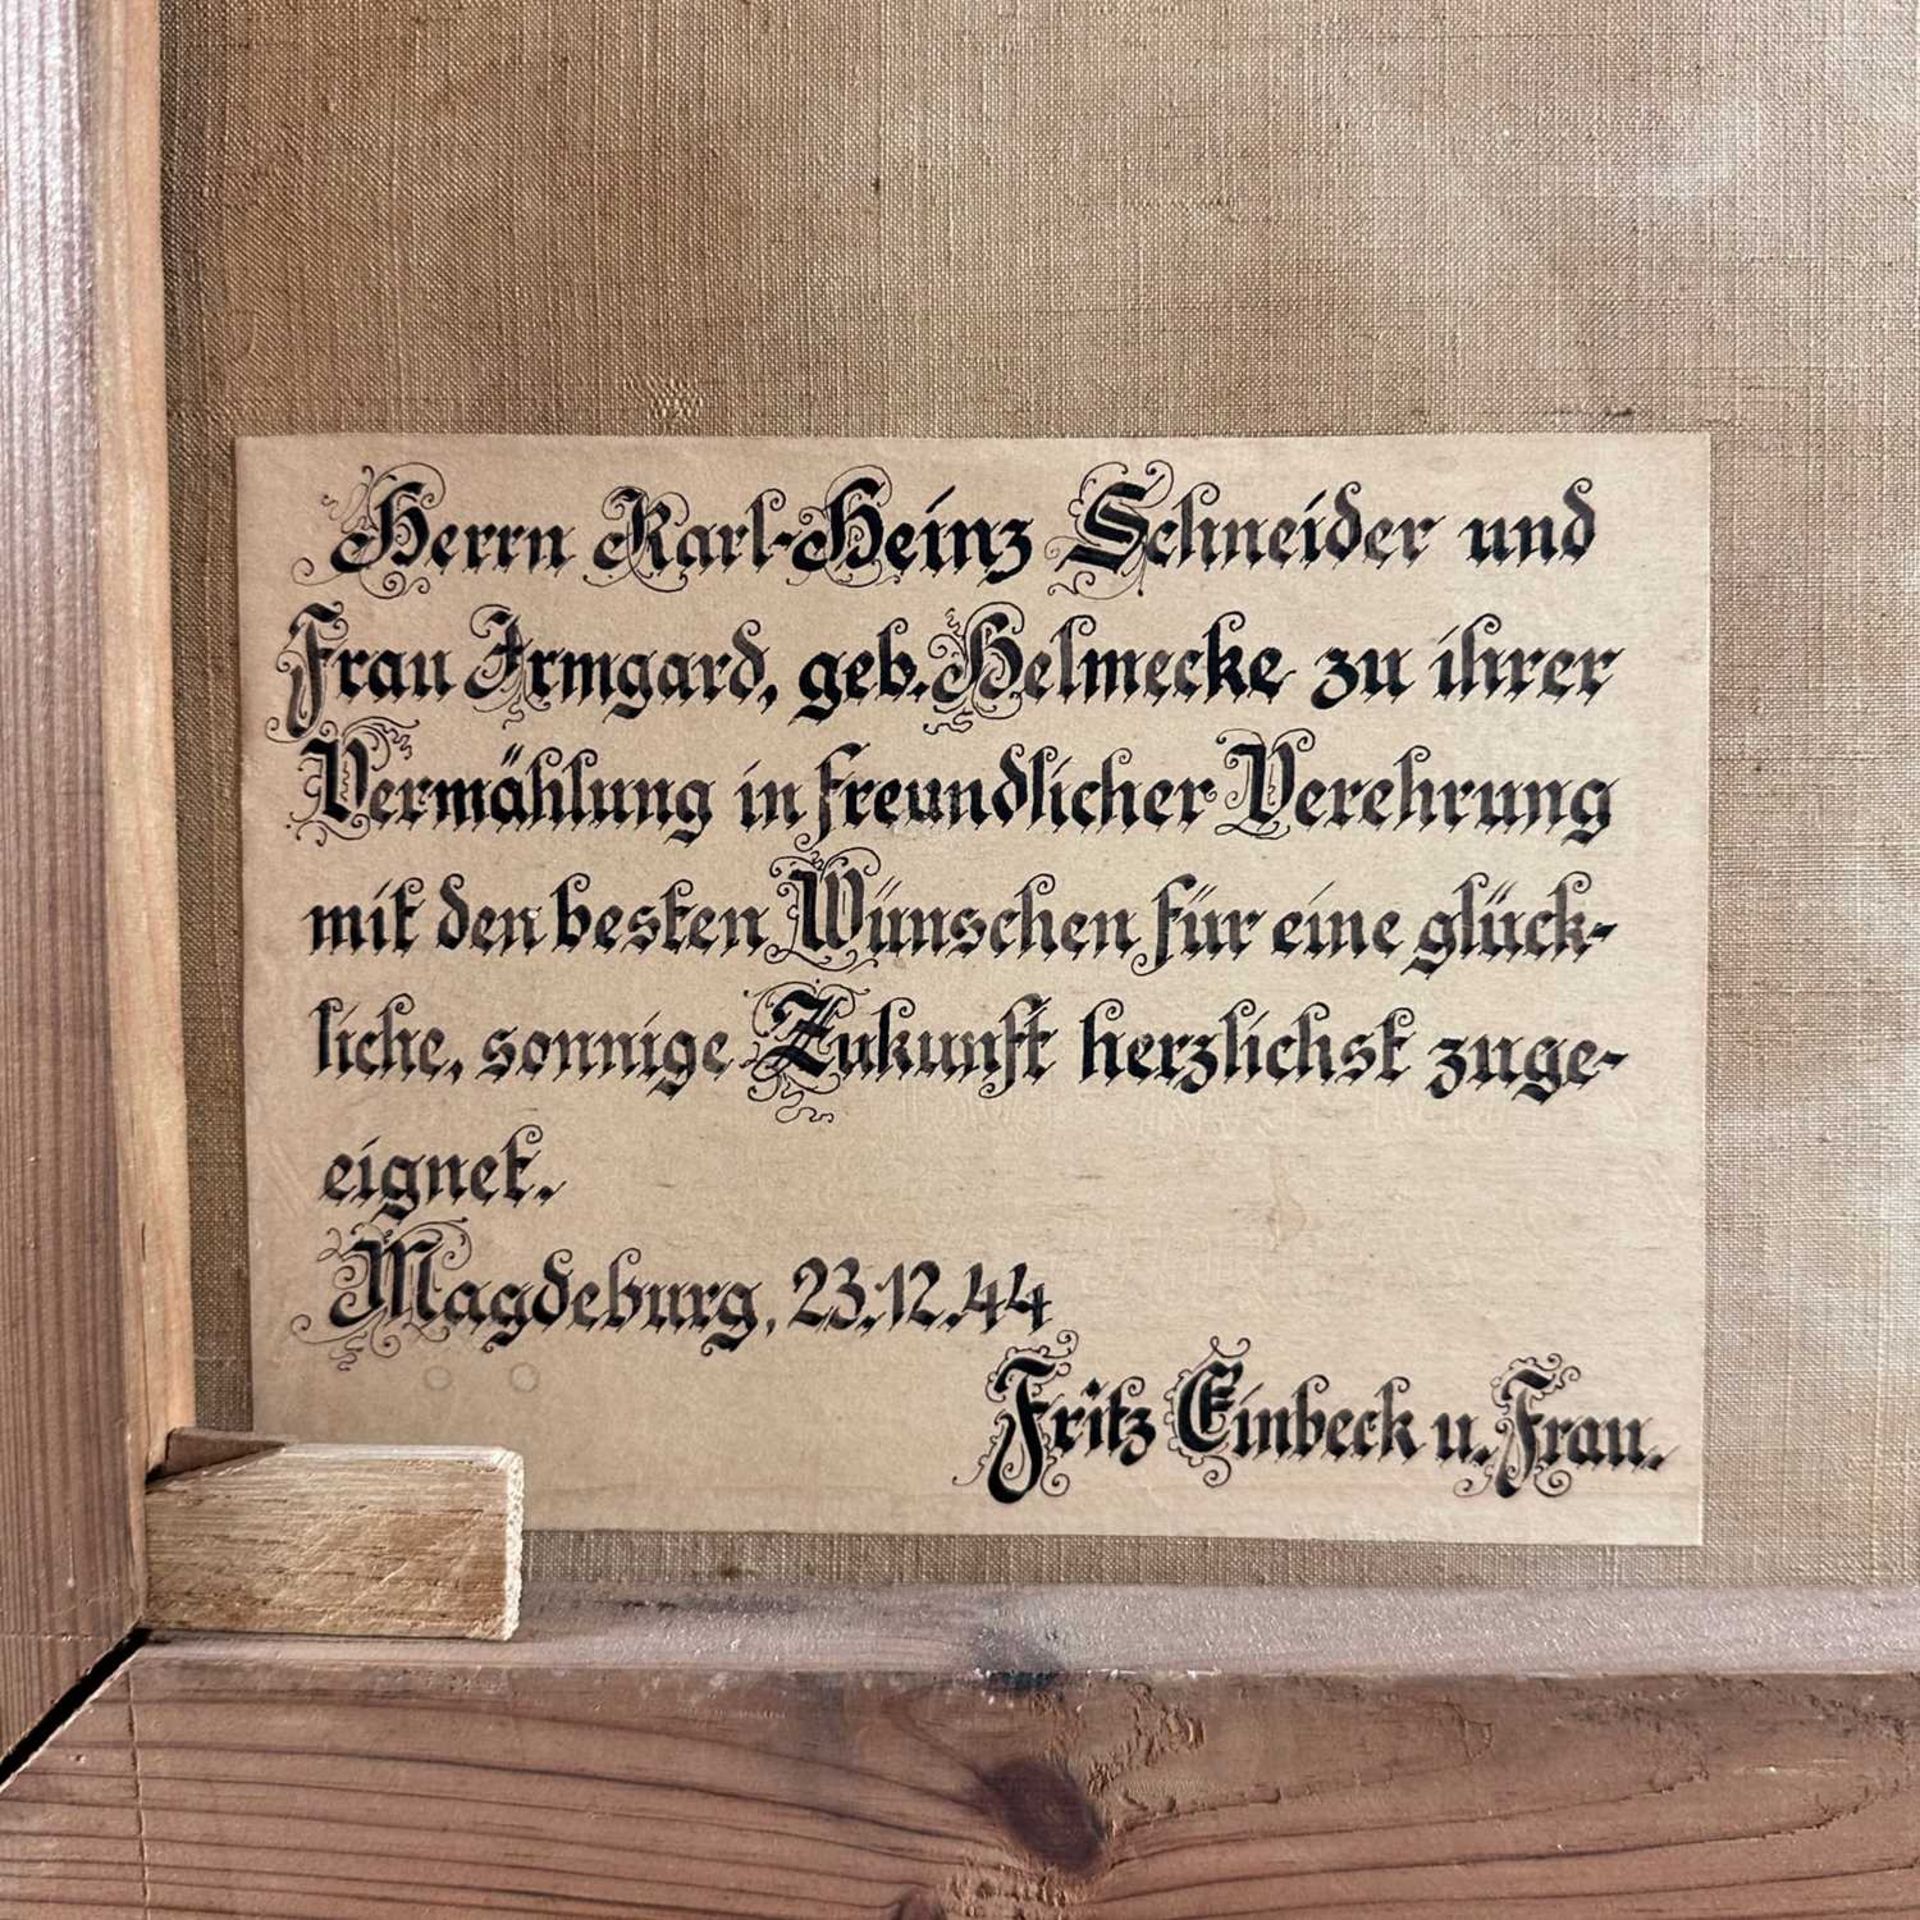 Herrn Karl-Heinz Schneider und
Frau Irmgard, geb. Helmecke zu ihrer
Vermählung in freundlicher Verehrung
mit den besten Wünschen für eine glück-
liche, sonnige Zukunft herzlichst zuge-
eignet.
Magdeburg, 23.12.44
Fritz Einbeck u. Frau.